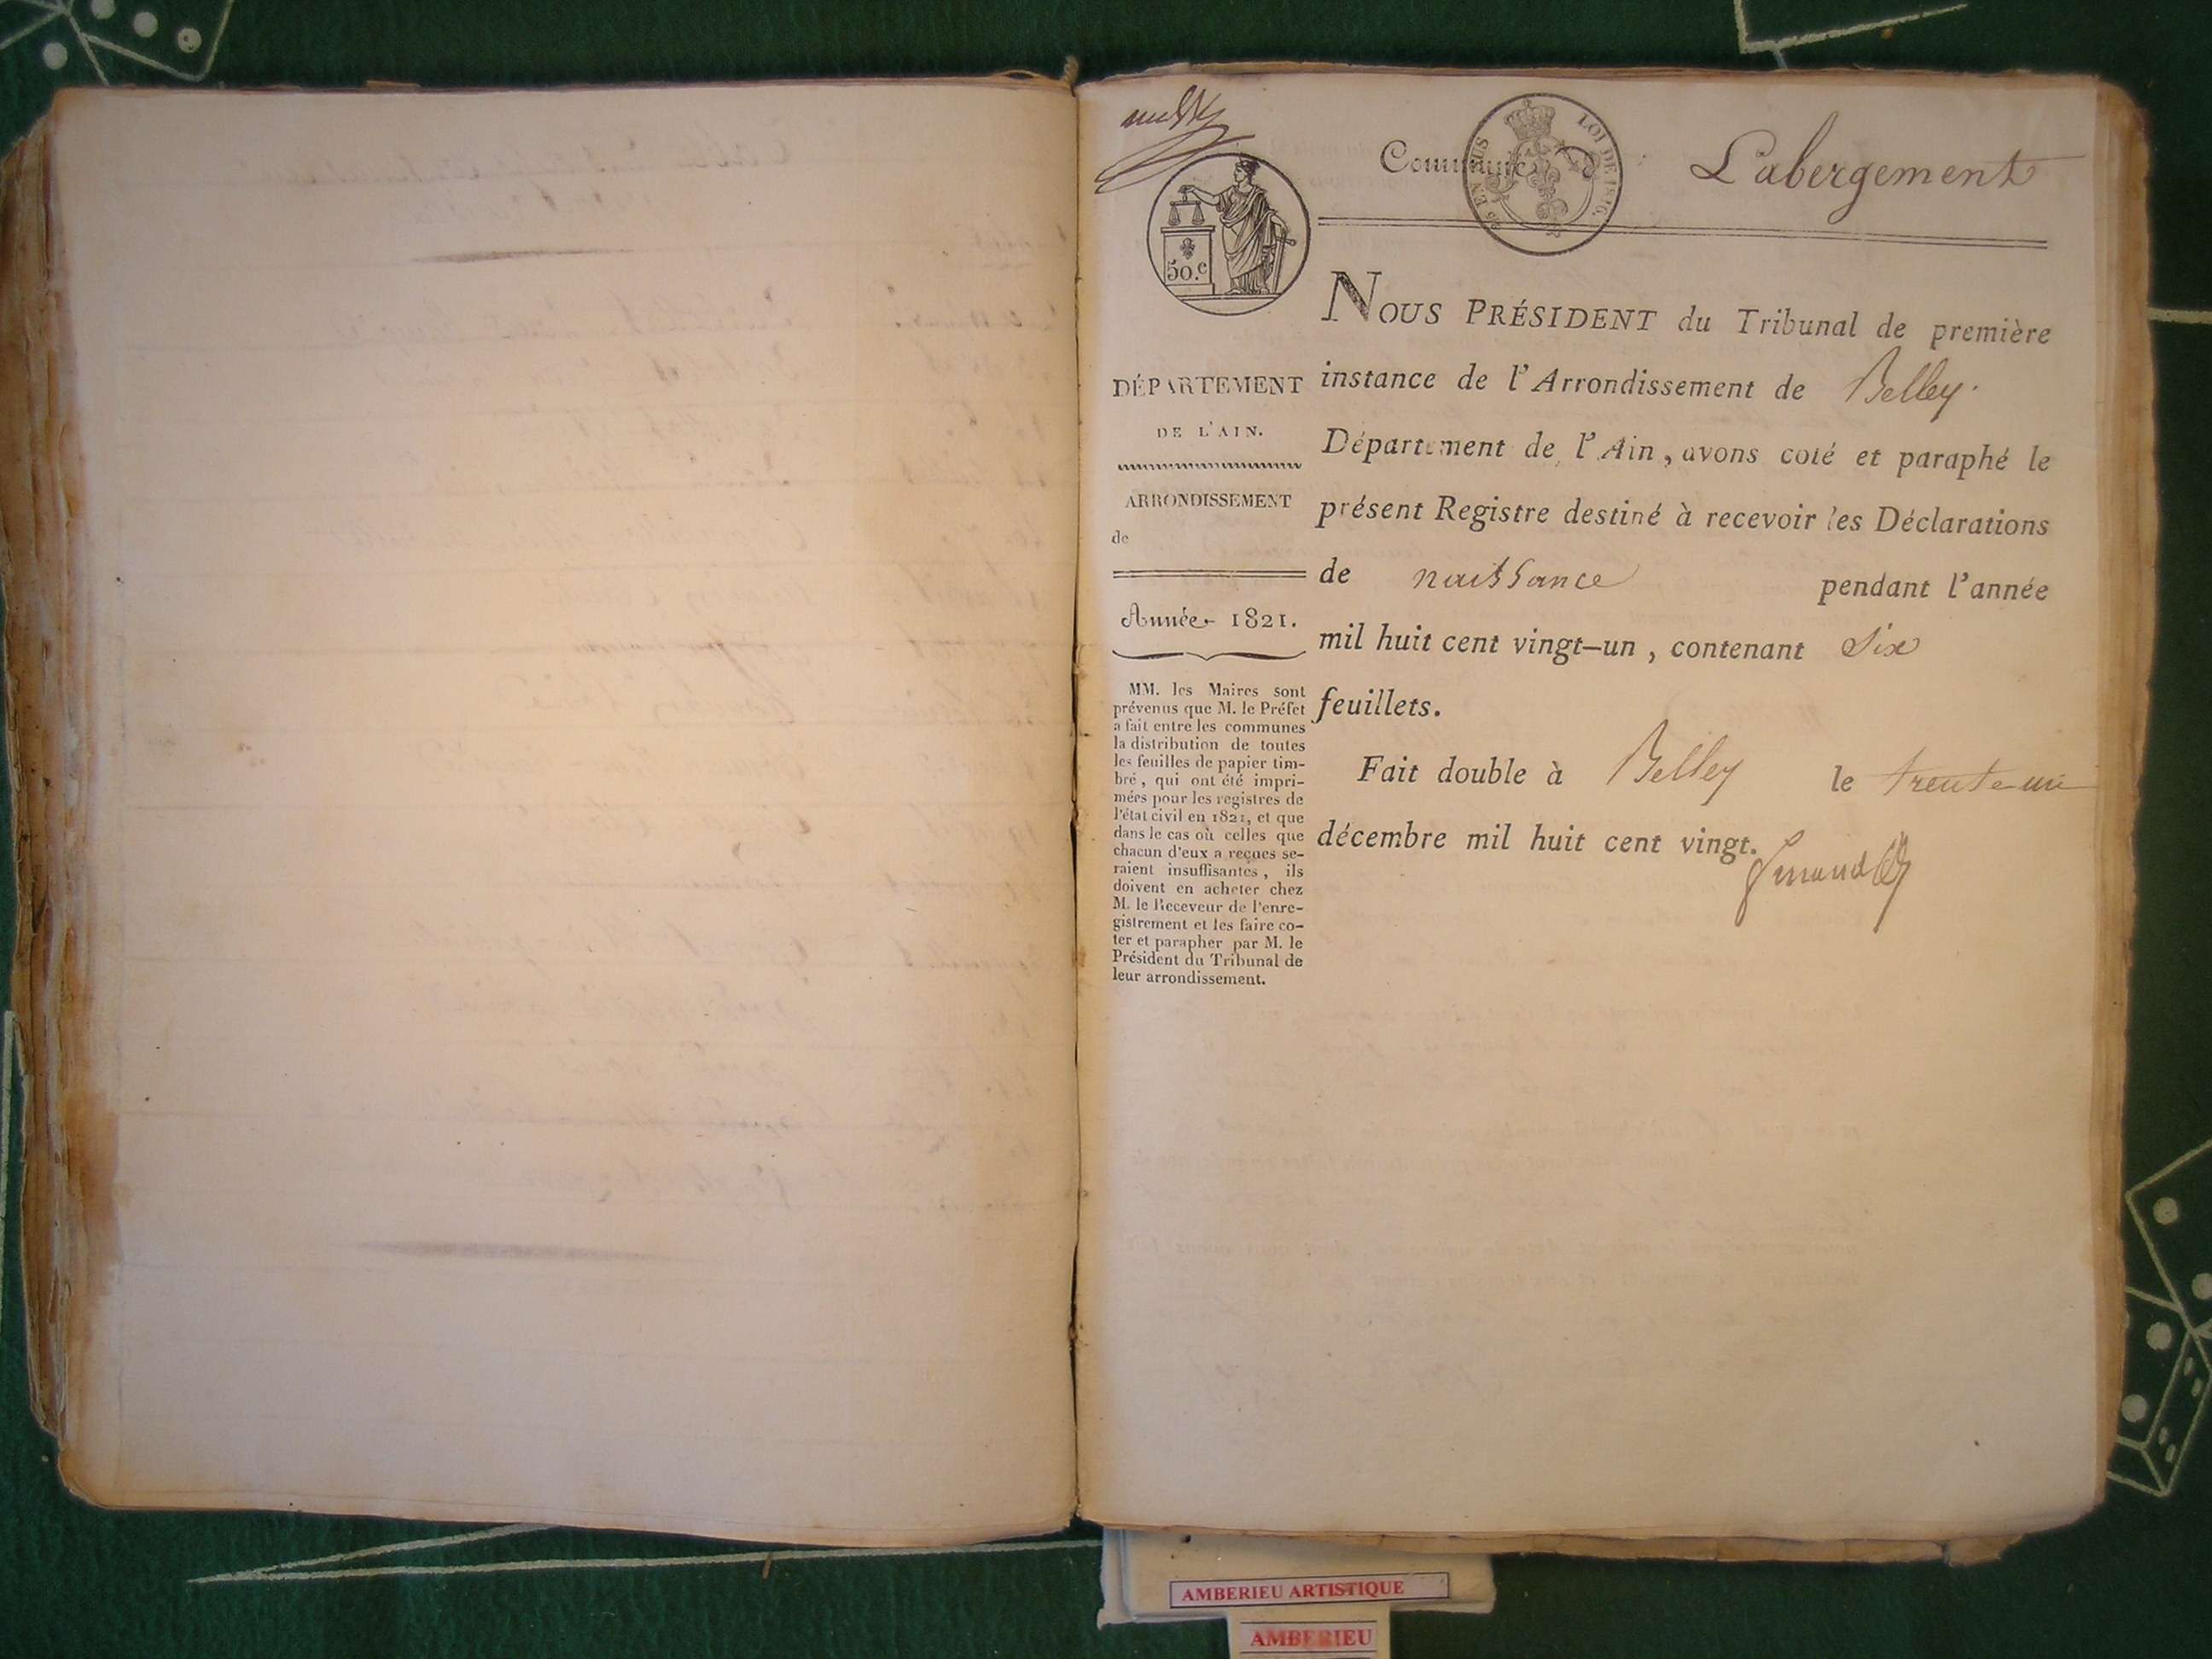 Commune d
Labergement
EN SUS
LOI DE 1816.
50.c
NOUS PRÉSIDENT du Tribunal de première
instance de l'Arrondissement de Belley.
Département de l'Ain, avons coté et paraphé le
présent Registre destiné à recevoir les Déclarations
de naissance pendant l'année
mil huit cent vingt-un, contenant Six
feuillets.
Fait double à Belley le trente un
décembre mil huit cent vingt.
DÉPARTEMENT
DE L'AIN.
ARRONDISSEMENT
de
Année 1821.
MM. les Maires sont
prévenus que M. le Préfet
a fait entre les communes
la distribution de toutes
les feuilles de papier tim-
bré, qui ont été impri-
mées pour les registres de
l'état civil en 1821, et que
dans le cas où celles que
chacun d'eux a reçues se-
raient insuffisantes, ils
doivent en acheter chez
M. le Receveur de l'enre-
gistrement et les faire co-
ter et parapher par M. le
Président du Tribunal de
leur arrondissement.
AMBERIEU ARTISTIQUE
AMBERIEU